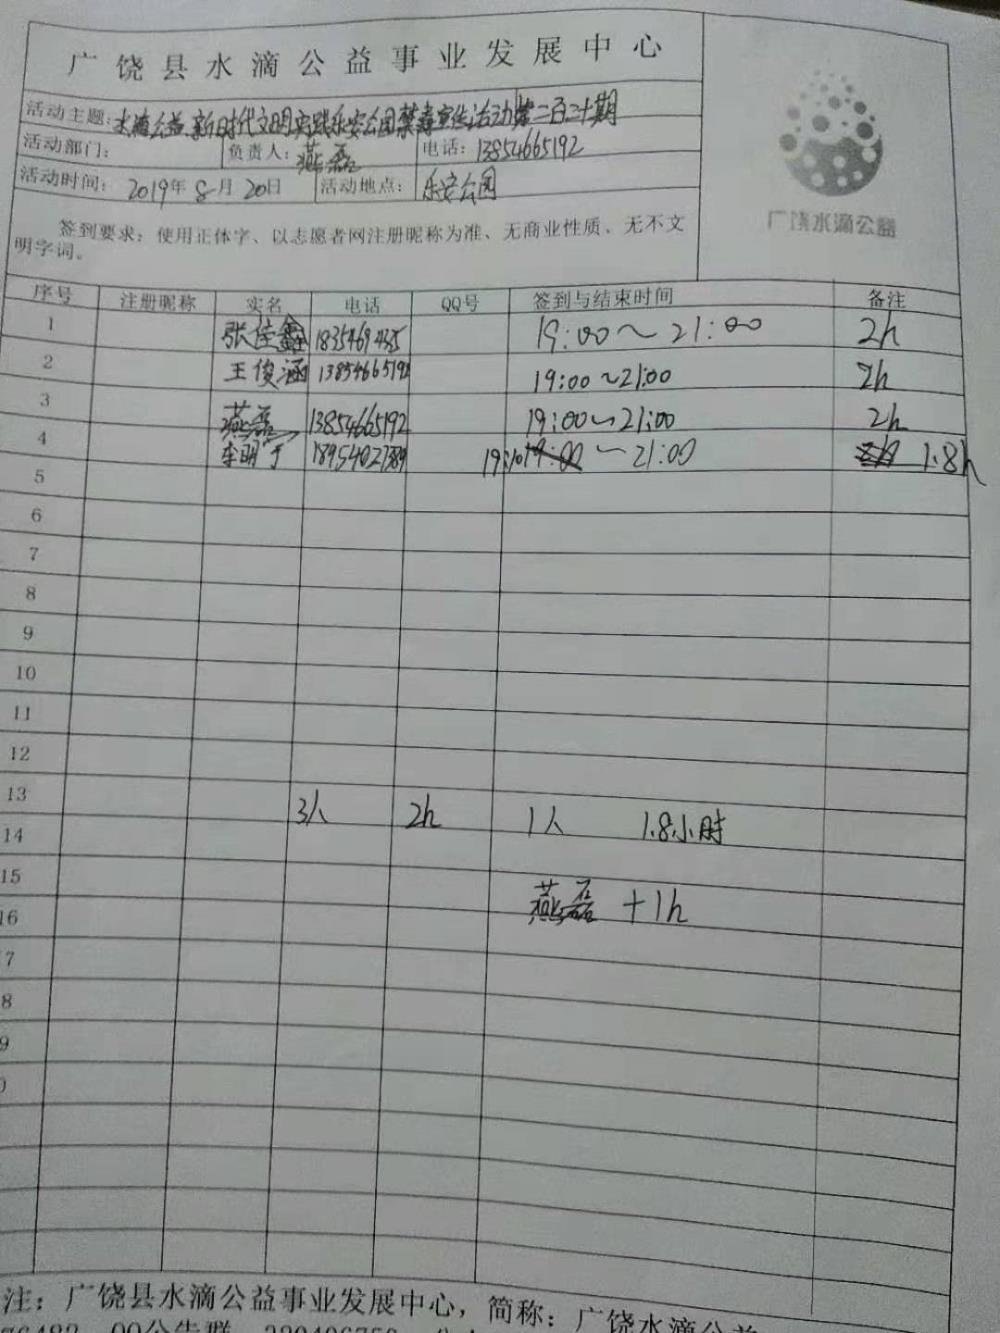 广饶县水滴公益事业发展中心
活动主题:水滴公益新时代文明实践乐安公园禁毒宣传活动第二百二十期
活动部门: 负责人:燕磊 电话:13854665192
活动时间: 2019年8月20日 活动地点: 乐安公园
广饶水滴公益
签到要求:使用正体字、以志愿者网注册昵称为准、无商业性质、无不文
明字词。
序号 注册昵称 实名 电话 QQ号 签到与结束时间 备注
1 张佳鑫 19:00~21:00 2h
2 王俊涵 13854665192 19:00~21:00 2h
3 燕磊 13854665192 19:00~21:00 2h
4 李明宁 18954027389 19:10~21:00 1.8h
5
6
7
8
9
10
11
12
13 3人 2h 1人 1.8小时
14
15 燕磊 +1h
16
7
8
9
注:广饶县水滴公益事业发展中心,简称:广饶水滴公益